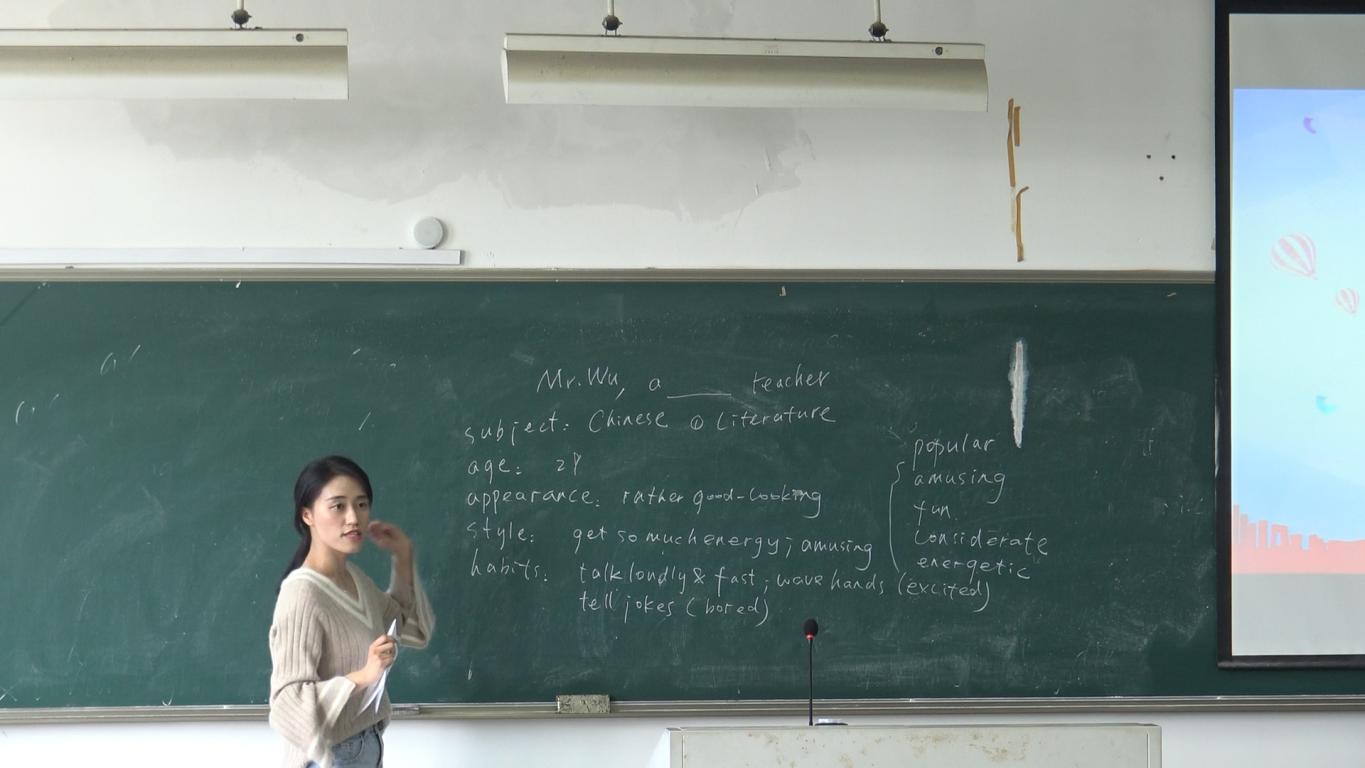 Mr. Wu, a ____ teacher
subject: Chinese @ Literature
age: 28
appearance: rather good-looking
style: get so much energy; amusing
habits: talk loudly & fast; wave hands (excited)
tell jokes (bored)
popular
amusing
fun
considerate
energetic